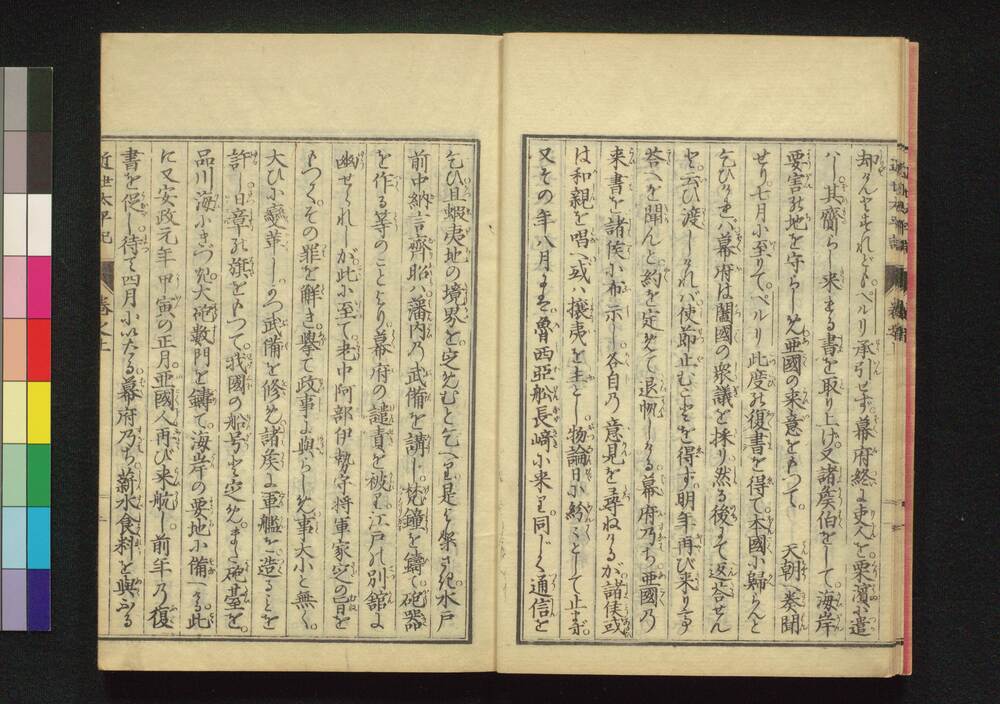 却けんとすれどもペルリ承引せず幕府終に吏人を栗濱に遣
はし其齎らし来れる書を取り上げ又諸矦伯をして海岸
要害の地を守らしめ亜國の来意をもつて 天朝へ奏聞
せり七月に至りてペルリ此度の復書を得て本國に歸らんと
乞ひけれバ幕府は闔國の衆議を採り然る後にて返答せん
と云ひ渡しけれバ使節止むことを得ず明年再び来りて
答へを聞んと約を定めて退帆しける幕府乃ち亜國の
来書を諸矦に布示し各自乃意見を尋ねけるが諸矦或
は和親を唱へ或ハ攘夷を主とし物論日に紛々として止まず
又その年八月にも魯西亜舩長﨑に来り同じく通信を
乞ひ且蝦夷地の境界を定めむと乞へり是より先き水戸
前中納言齊昭ハ藩内乃武備を講し梵鐘を鑄て砲器
を作る等のことより幕府の譴責を被り江戸の別舘に
幽せられしが此に至て老中阿部伊勢守将軍家定の旨を
もつてその罪を解き擧て政事に與らしめ事大小と無く
大ひに變革しかつ武備を修め諸矦に軍艦を造ることを
許し日章の旗をもつて我國の船号と定めまた砲䑓を
品川海にきづき大砲數門を鑄て海岸の要地に備へる此
に又安政元年甲寅の正月亜國人再び来航し前年乃復
書を促し待て四月にいたる幕府乃ち薪水食料を與ふる
近世太平記 巻之上